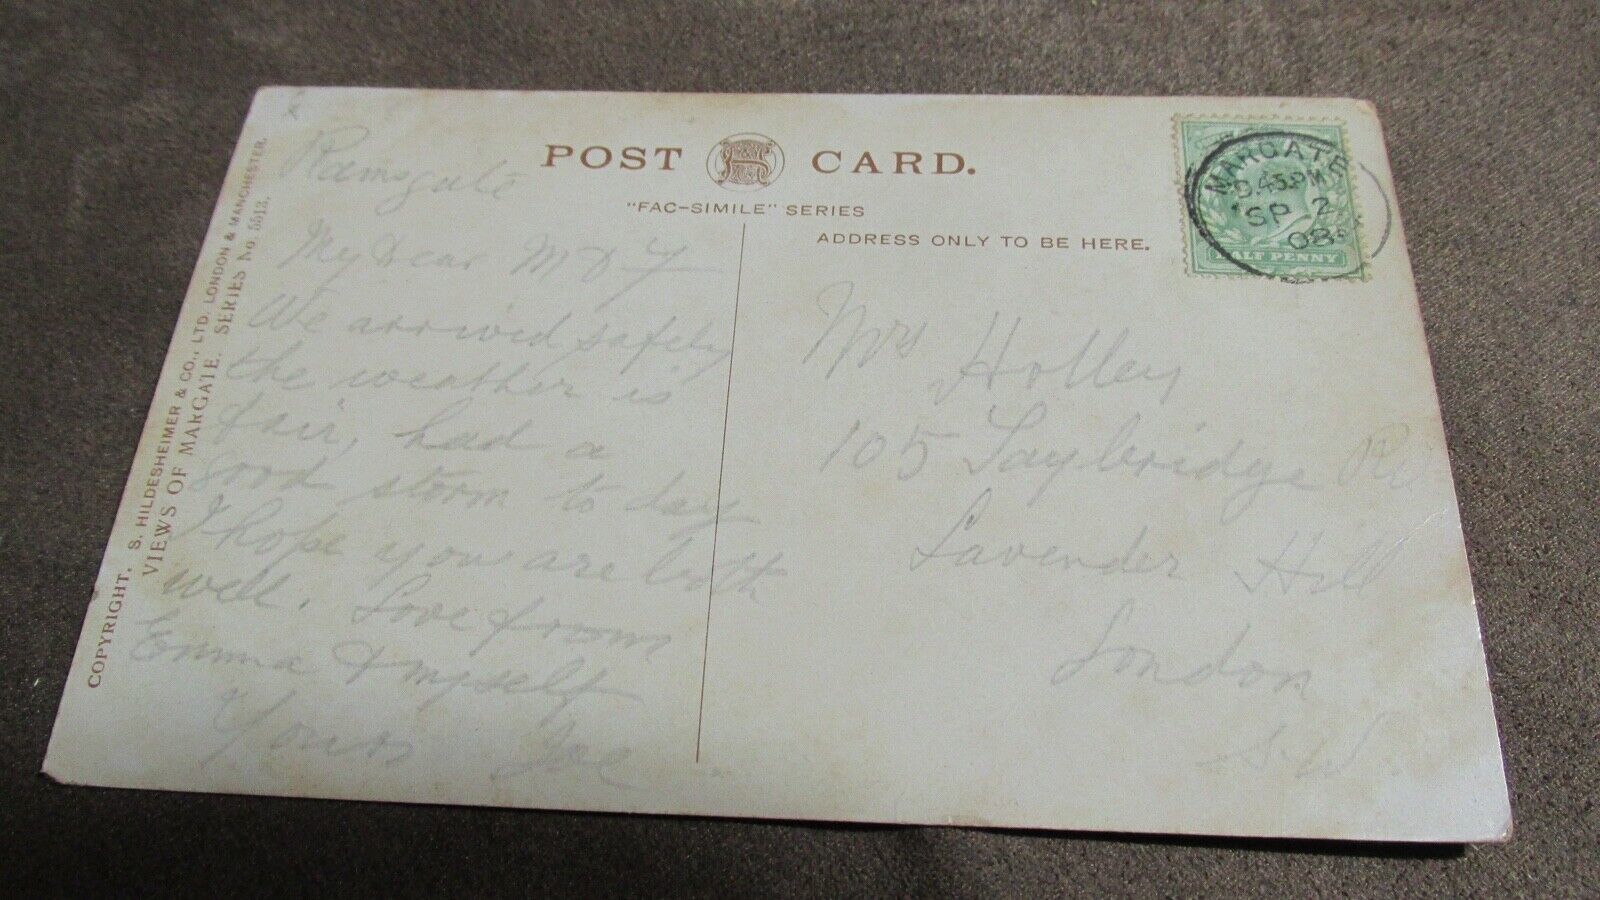 POST CARD.
"FAC-SIMILE" SERIES
ADDRESS ONLY TO BE HERE.
MARGATE
9.45 PM
SP 2
08
HALF PENNY
COPYRIGHT. S. HILDESHEIMER & CO., LTD. LONDON & MANCHESTER.
VIEWS OF MARGATE. SERIES No. 5513.
Ramsgate
My Dear M & F
We arrived safely
the weather is
fair, had a
good storm to day
I hope you are both
well. Love from
Emma & myself
Yours Joe
Mrs Holley
105 Taybridge Rd
Lavender Hill
London
S.W.